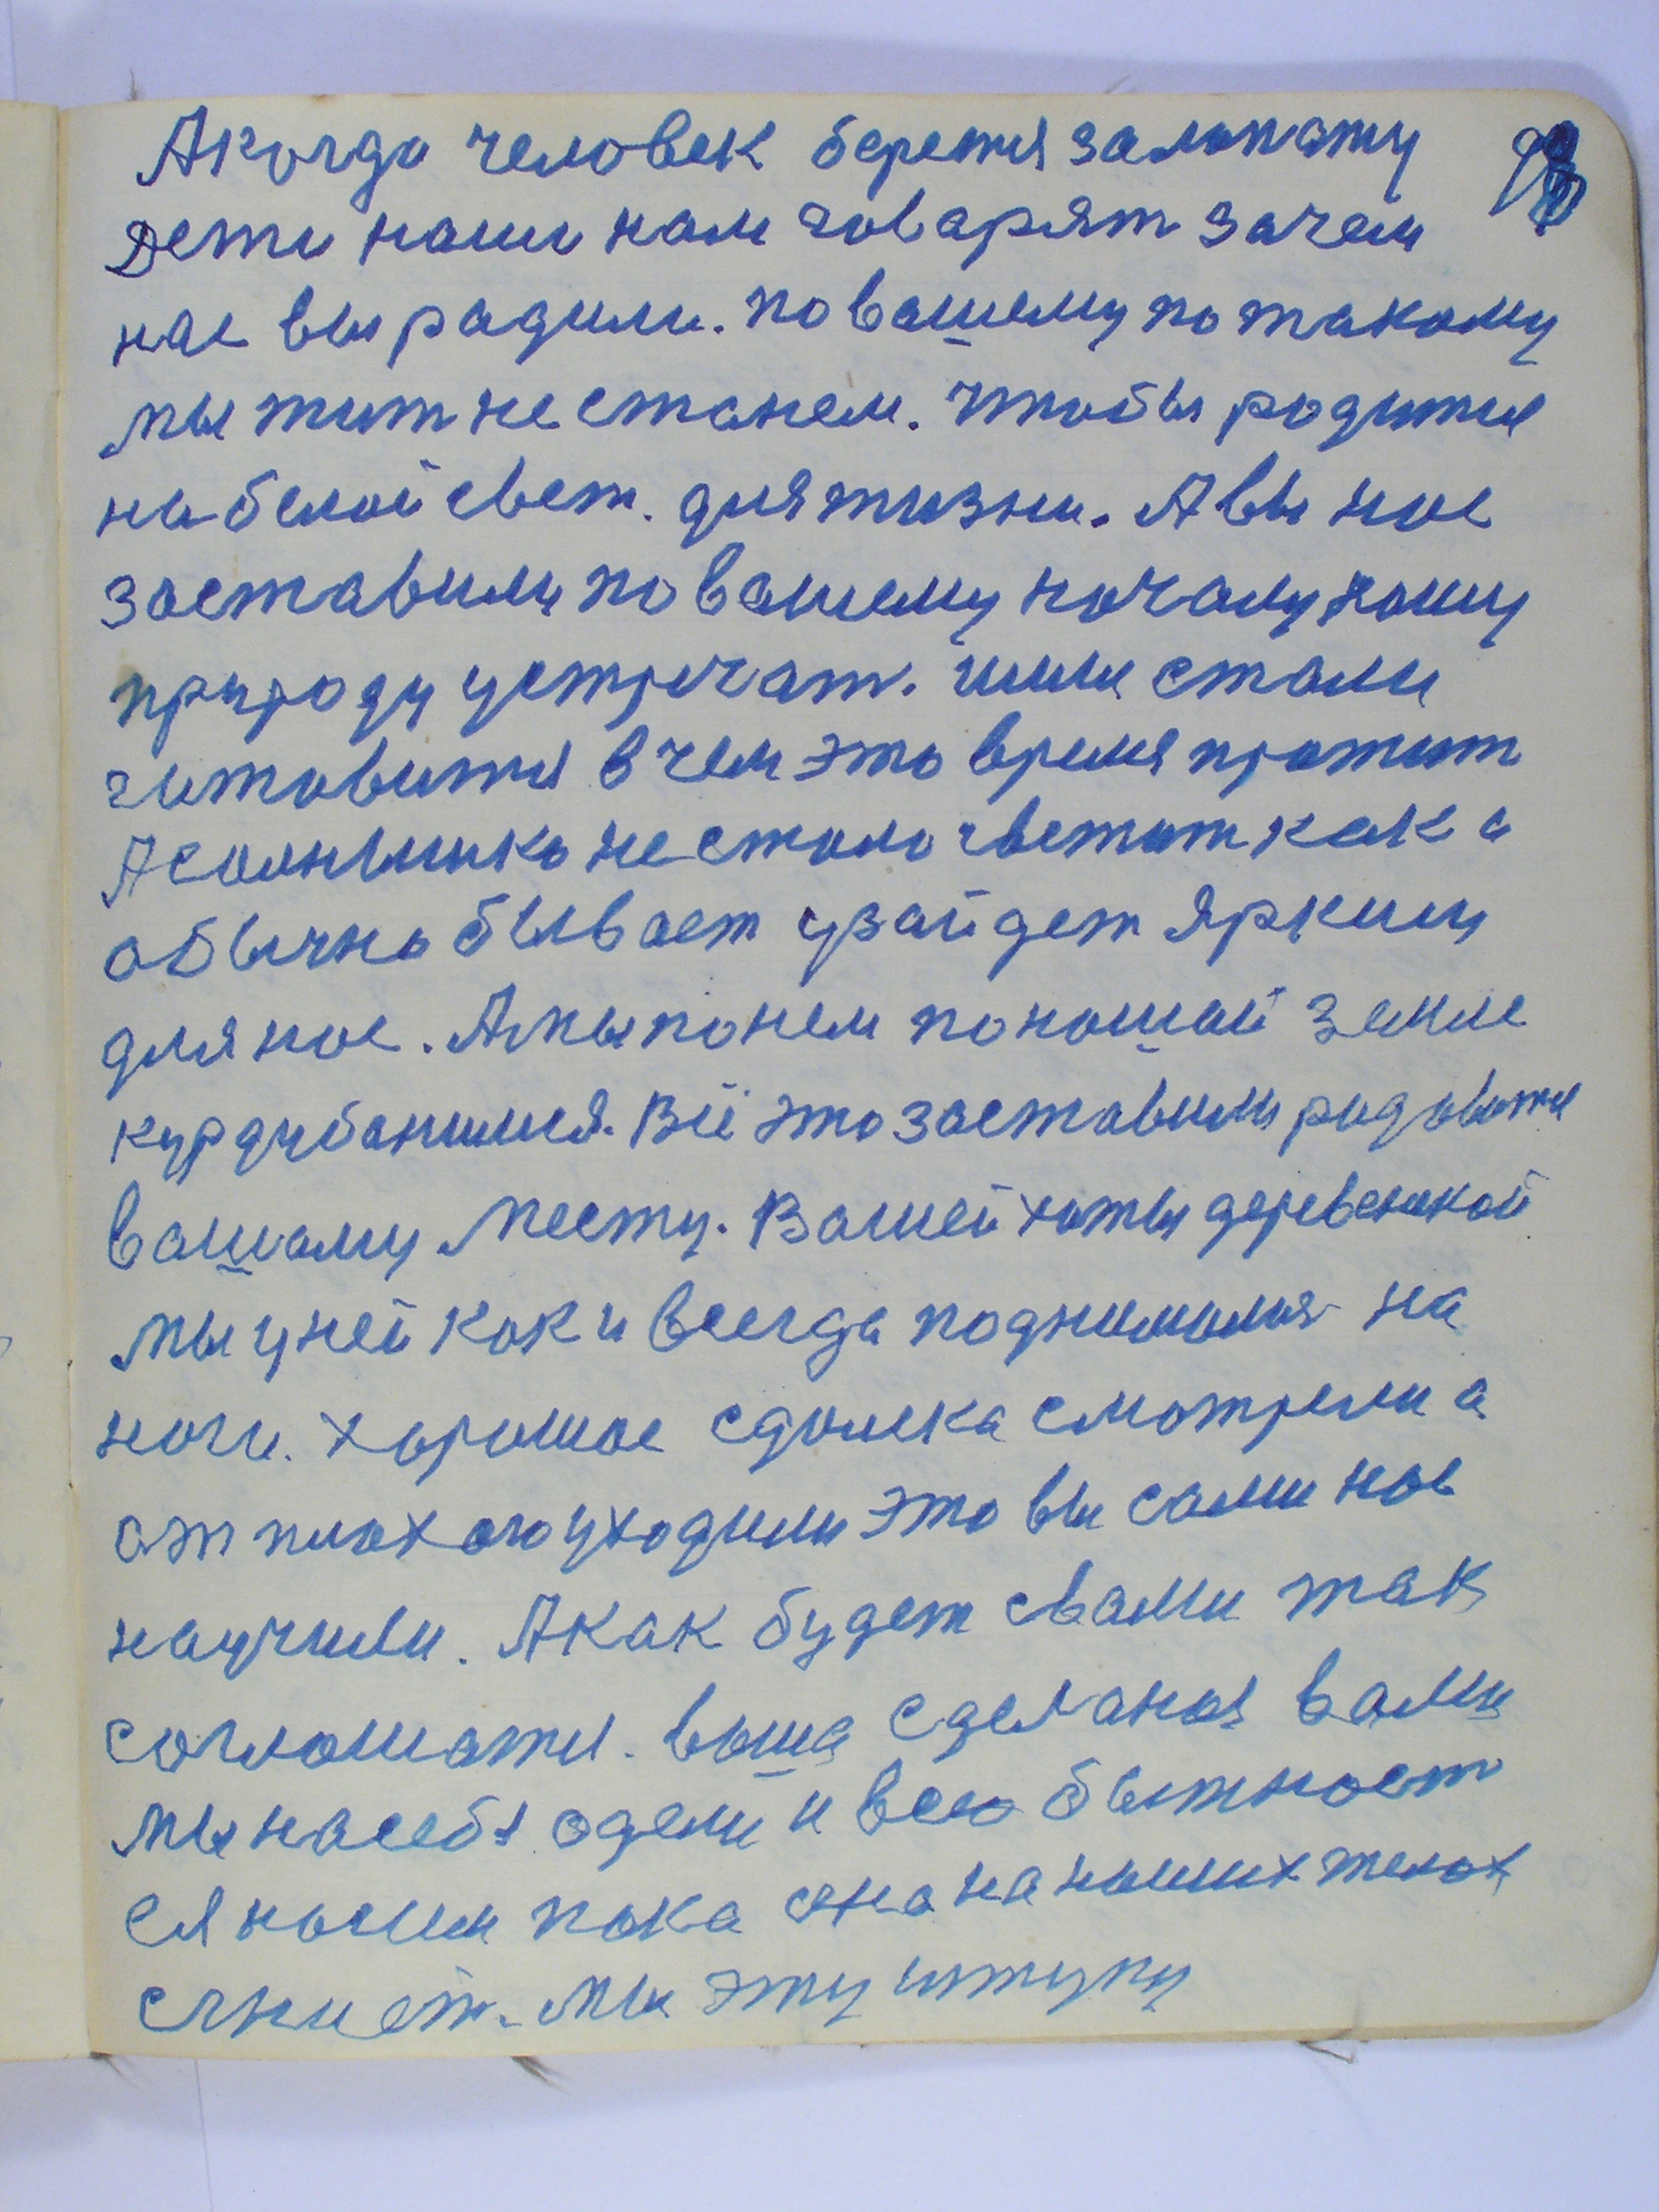 Акогда человек берется залопату
Дети наши нам говарят зачем
нас вы радили. по вашему по такому
мы жит не станем. чтобы родится
на белой свет. для жизни. А вы нас
заставили по вашему началу нашу
природу устречат. или стали
готовится в чем это время прожит
А солнышко не стало светит как а
обычно бывает узайдет ярким
для нас. А мы по нем по нашай земле
курдубанимся. Всё это заставили радоватся
вашаму месту. Вашей хоты деревенской
мы у ней как и всегда поднимался на
ноги. хорошае сдалека смотрели а
от плохого уходили это вы сами нас
научили. А как будет свами так
соглошатся. выше сделаная вами
мы насебя одели и всю бытност
ся носим пока она на наших телах
сгниет. Мы эту штуку